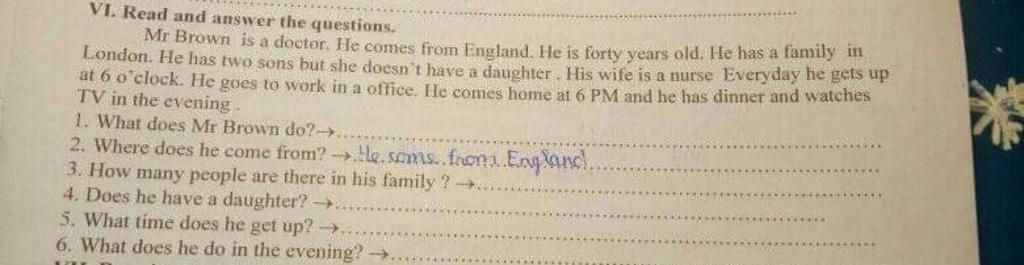 VI. Read and answer the questions.
Mr Brown is a doctor. He comes from England. He is forty years old. He has a family in
London. He has two sons but she doesn't have a daughter . His wife is a nurse Everyday he gets up
at 6 o'clock. He goes to work in a office. He comes home at 6 PM and he has dinner and watches
TV in the evening .
1. What does Mr Brown do?→
2. Where does he come from? → He coms from England
3. How many people are there in his family ? →
4. Does he have a daughter? →
5. What time does he get up? →
6. What does he do in the evening? →